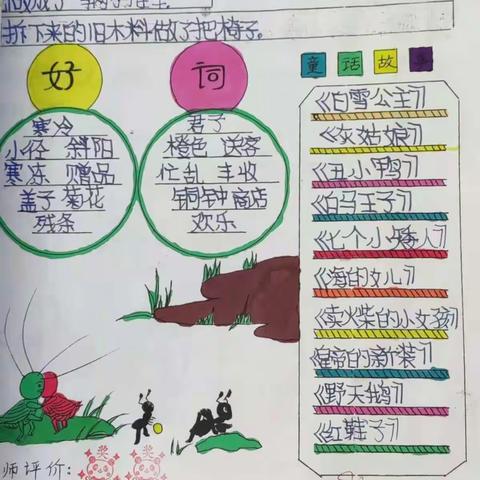 拆下来的旧木料做了把椅子。
好
词
童话故事
寒冷
小径 斜阳
寒冻 赠品
盖子 菊花
残条
君子
橙色 送客
忙乱 丰收
铜钟 商店
欢乐
《白雪公主》
《灰姑娘》
《丑小鸭》
《白马王子》
《七个小矮人》
《海的女儿》
《卖火柴的小女孩》
《皇帝的新装》
《野天鹅》
《红鞋子》
师评价:
奖 奖